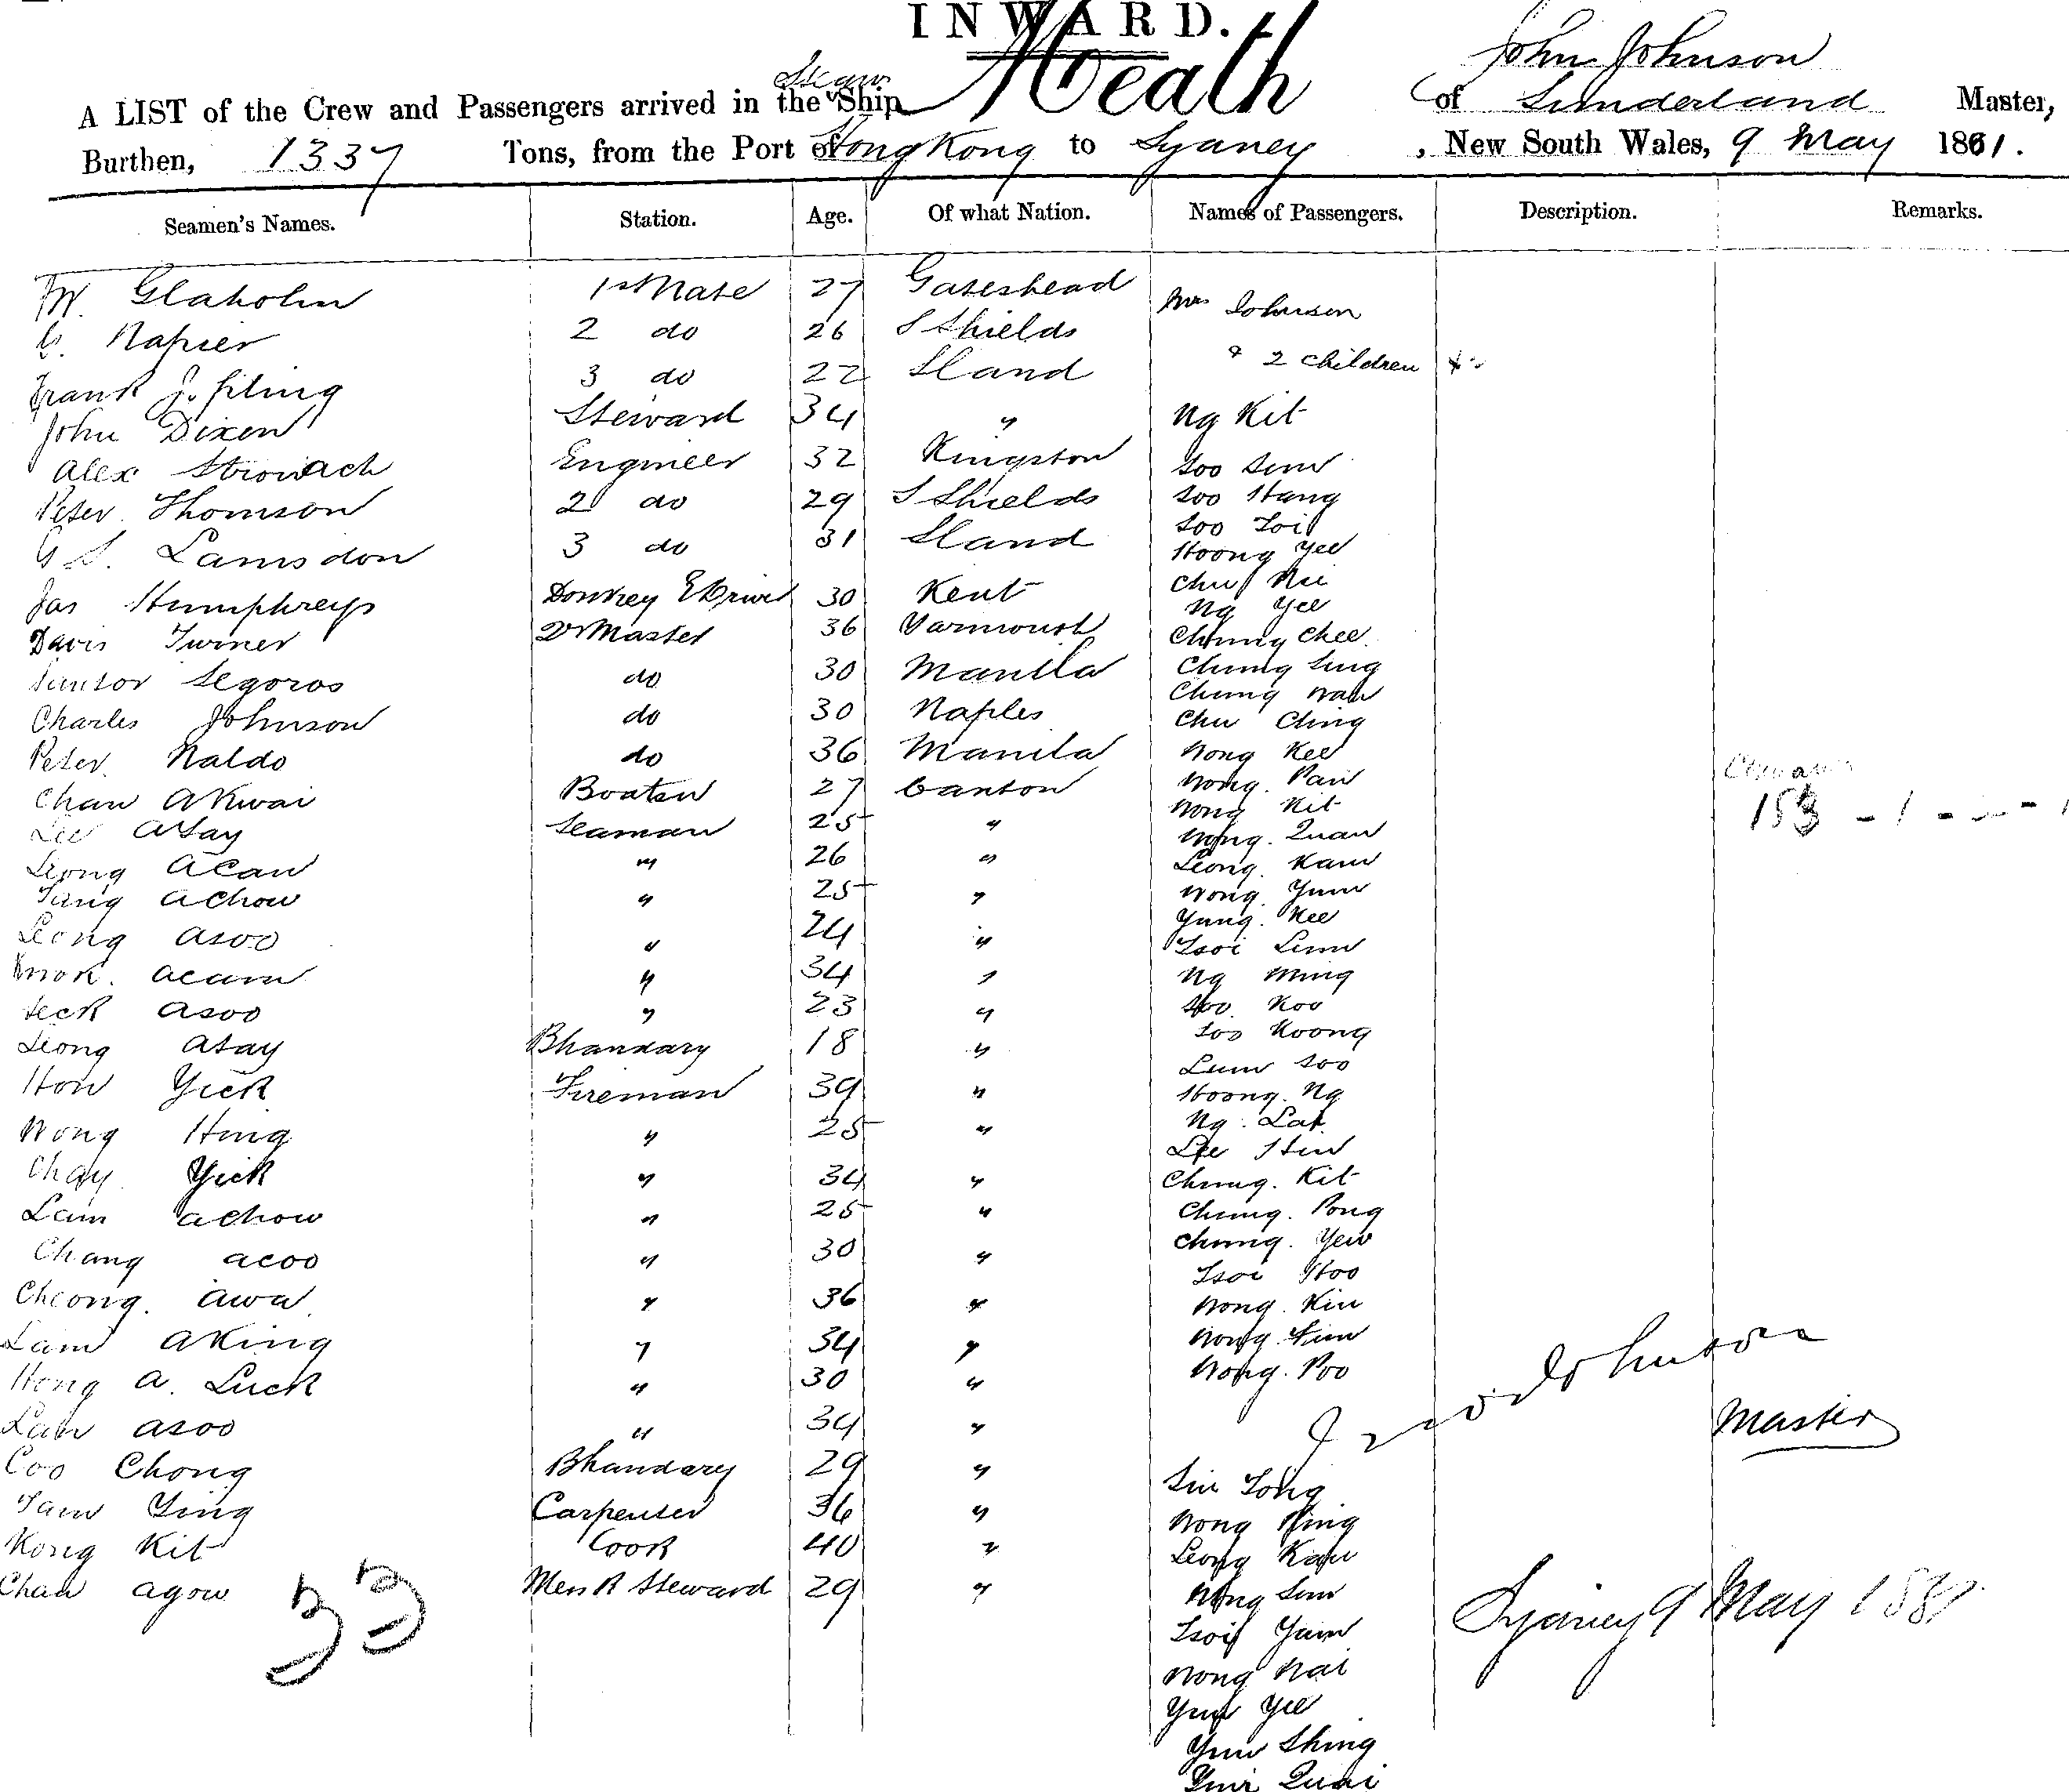 INWARD.
A LIST of the Crew and Passengers arrived in the Ship Meath John Johnson of Sunderland Master,
Burthen, 1337 Tons, from the Port of Hong Kong to Sydney, New South Wales, 9 May 1881.
Seamen's Names. Station. Age. Of what Nation. Names of Passengers. Description. Remarks.
Glaholm 1st Mate 27 Gateshead Mrs Johnson
Napier 2 do 26 S Shields
& 2 children
Frank 3 do 22 Sland
John Dixon Steward 34 " Ng Kit
Alex Engineer 32 Kingston Soo Sim
Peter Thomson 2 do 29 S Shields Soo Hang
Soo Loi
G S. Lamsdon 3 do 31 Sland Hoong Yee
Jas Humphreys Donkey E Driver 30 Kent Chu
Ng Yee
Davis Turner Qr Master 36 Yarmouth Chung Chee
Segoros do 30 Manila Chung Sing
Chung Wah
Charles Johnson do 30 Naples Chu Ching
Peter Naldo do 36 Manila Wong Kee
Chan Akwai Boatsn 27 Canton Wong. Pan
Wong Kit
Lee Asay Seaman 25 " Wong. Quan
Leong Acan " 26 " Leong. Kam
Tang Achow " 25 " Wong. Yum
Yung. Kee
Leong Asoo " 24 " Tsoi Lum
Acam " 34 " Ng Ming
Asoo " 23 " Soo Koo
Leong Asay Bhandary 18 " Soo Koong
Lum Soo
Hon Yick Fireman 39 " Hoong. Ng
Ng. Lat
Wong Hing " 25 " Lee Hin
Chay Yick " 34 " Chung. Kit
Lam Achow " 25 " Chung. Pong
Chung. Yew
Chang Acoo " 30 " Tsoi Hoo
Cheong. Awa " 36 " Wong. Kin
Lam Aking " 34 " Wong.
Hong A. Luck " 30 " Wong. Poo
Johnson
Master
Lan Asoo " 34 "
Coo Chong Bhandary 29 " Sin Tong
Tam Ying Carpenter 36 " Wong Hing
Kong Kit Cook 40 " Leong Kan
Chan Agow Mess R Steward 29 " Wong Sim
33
Sydney 9 May 1881
Tsoi Yam
Wong Nai
Yun Yee
Yun Shing
Yun Quai
153